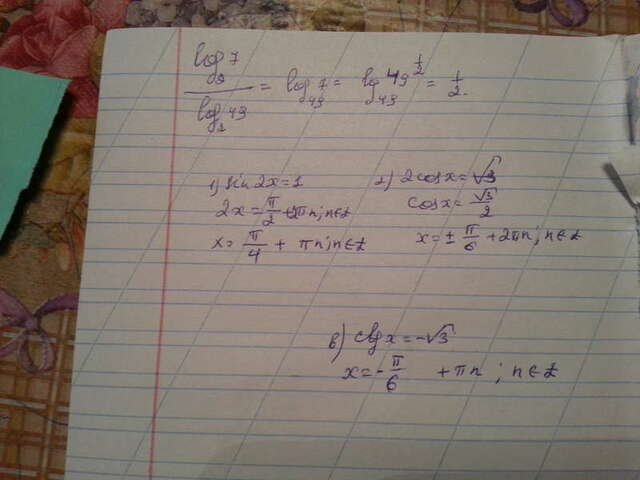 log₂7 / log₂49 = log₄₉7 = log₄₉49^½ = ½.
1) sin2x=1
2x=π/2+2πn; n∈z
x=π/4 + πn; n∈z
2) 2cosx=√3
cosx=√3/2
x=±π/6+2πn; n∈z
в) ctgx=-√3
x=-π/6 +πn ; n∈z